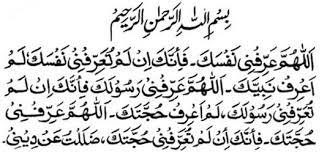 بِسْمِ اللهِ الرَّحْمٰنِ الرَّحِيْمِ
اَللّٰهُمَّ عَرِّفْنِيْ نَفْسَكَ۔ فَاِنَّكَ اِنْ لَمْ تُعَرِّفْنِيْ نَفْسَكَ لَمْ
اَعْرِفْ نَبِيَّكَ۔ اَللّٰهُمَّ عَرِّفْنِيْ رَسُوْلَكَ فَاِنَّكَ اِنْ لَمْ
تُعَرِّفْنِيْ رَسُوْلَكَ، لَمْ اَعْرِفْ حُجَّتَكَ۔ اَللّٰهُمَّ عَرِّفْنِيْ
حُجَّتَكَ۔ فَاِنَّكَ اِنْ لَمْ تُعَرِّفْنِيْ حُجَّتَكَ، ضَلَلْتُ عَنْ دِيْنِيْ۔